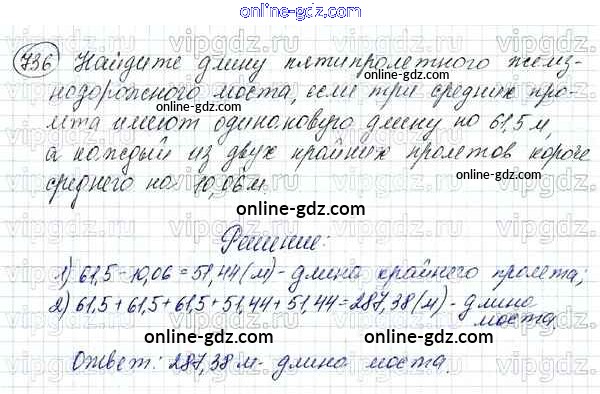 online-gdz.com
736 Найдите длину пятипролетного желез-
нодорожного моста, если три средних про-
online-gdz.com
лёта имеют одинаковую длину по 61,5 м,
а каждый из двух крайних пролетов короче
среднего на 10,06 м.
online-gdz.com
Решение:
online-gdz.com
1) 61,5-10,06=51,44(м)-длина крайнего пролета;
2) 61,5+61,5+61,5+51,44+51,44=287,38(м)-длина
моста.
online-gdz.com
Ответ: 287,38 м длина моста.
online-gdz.com